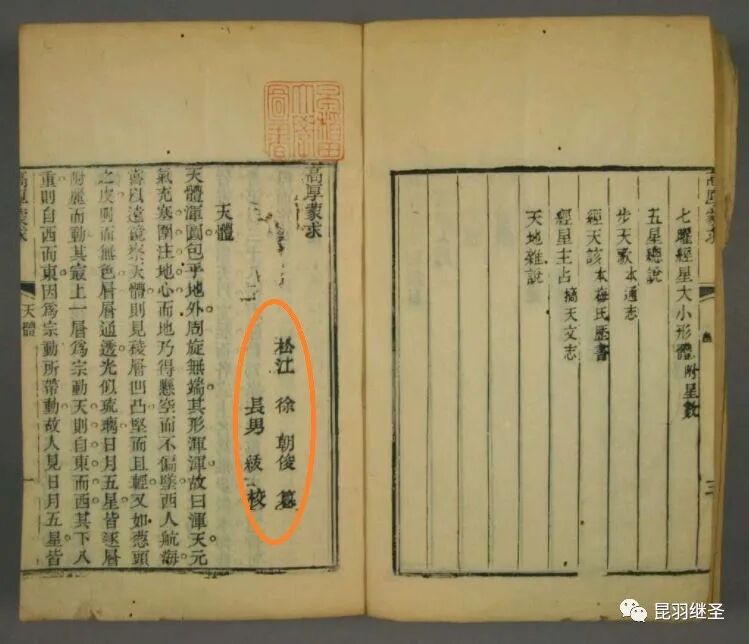 高厚蒙求
三
七曜經星大小形體 附星數
五星總說
步天歌 本通志
經天該 本梅氏歷書
經星主占 摘天文志
天地雜說
早稻田大學圖書
高厚蒙求
松江 徐 朝俊
長男 校
天體
天體渾圓包乎地外周旋無端其形渾渾故曰渾天元
氣充塞團注地心而地乃得懸空而不偏墜西人航海
遠鏡察天體則見稜層凹凸堅而且輕又如葱頭
之皮明而無色層層通透光似琉璃日月五星皆逐層
附麗而動其最上一層爲宗動天則自東而西其下八
重則自西而東因爲宗動所帶動故人見日月五星皆
高厚蒙求 天體 一
昆羽继圣